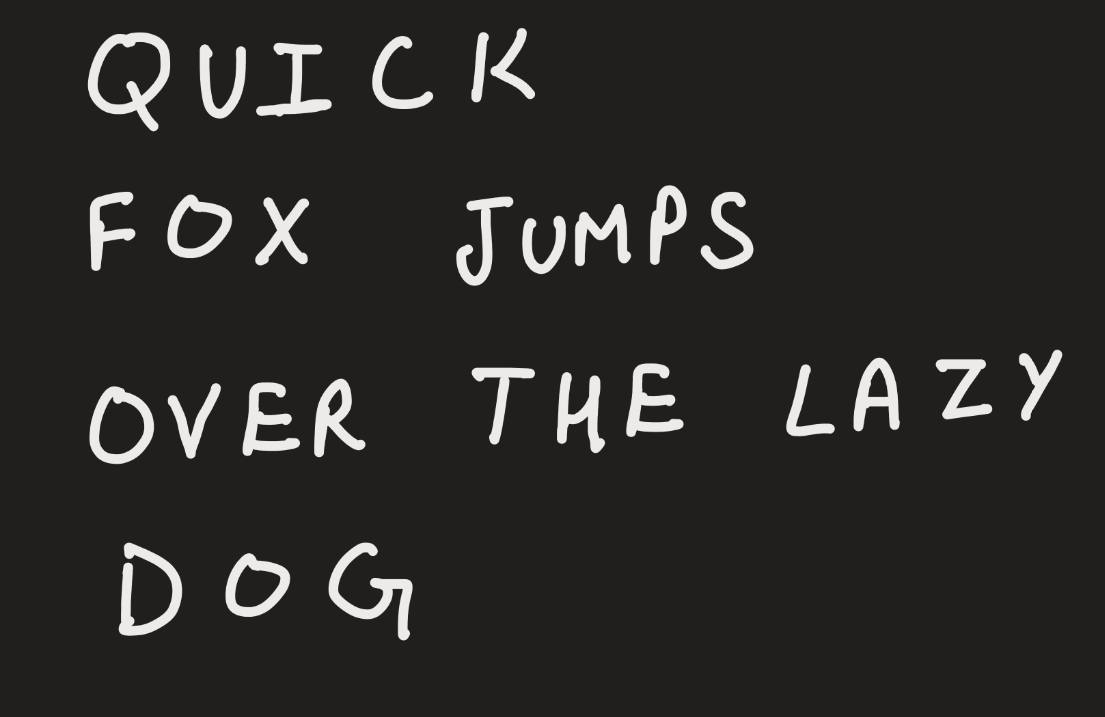 QUICK
FOX JUMPS
OVER THE LAZY
DOG